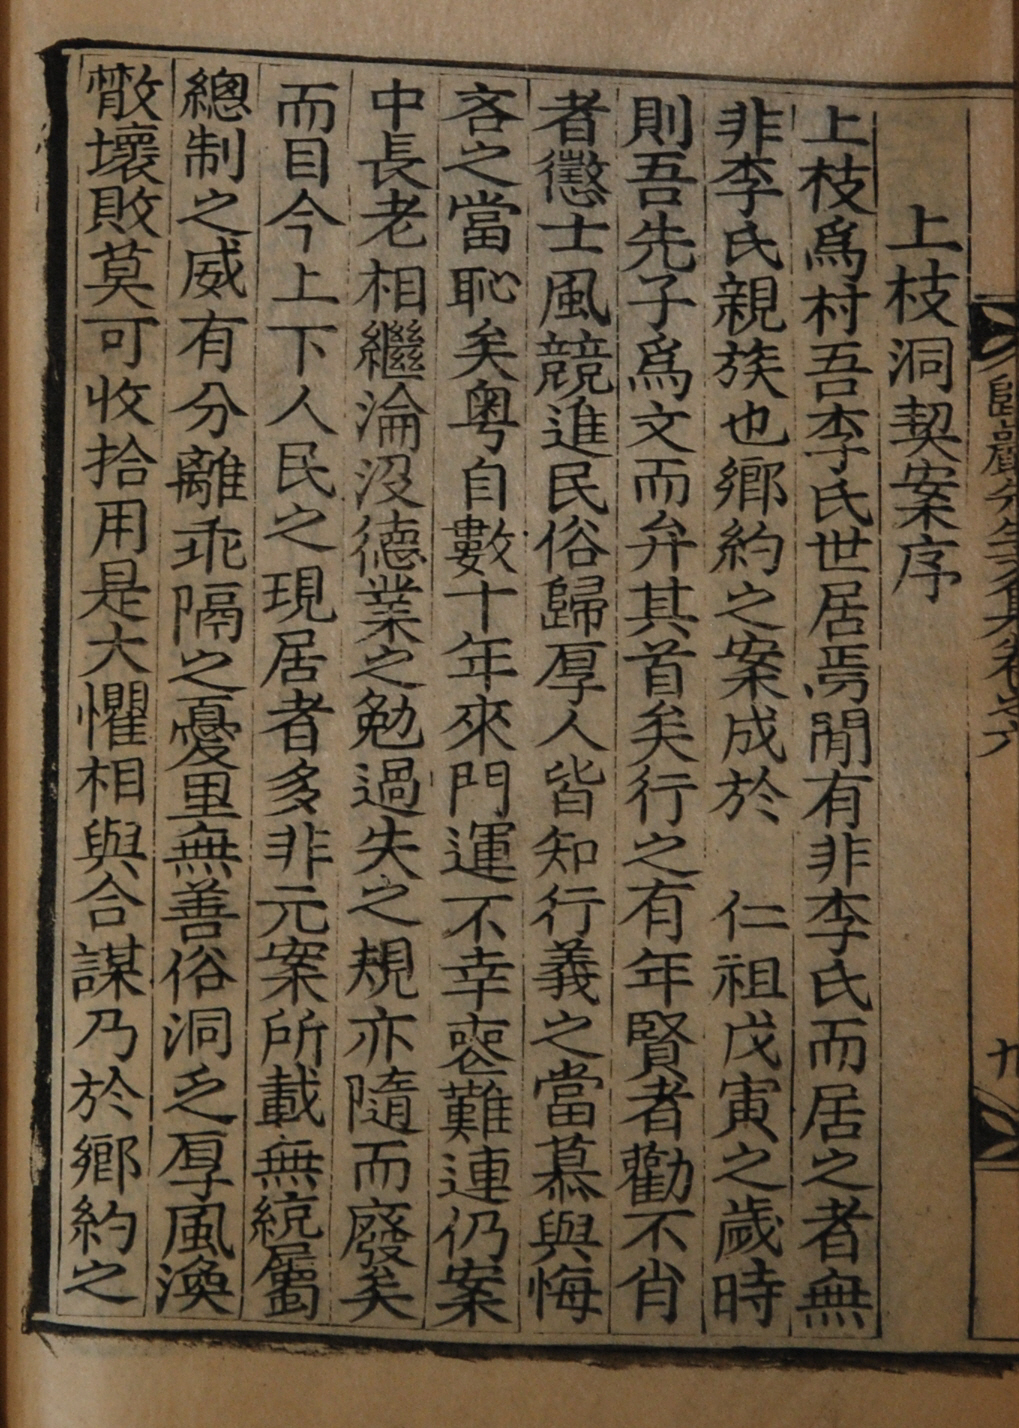 歸巖先生文集卷之六
九
上枝洞契案序
上枝爲村吾李氏世居焉間有非李氏而居之者無
非李氏親族也鄉約之案成於 仁祖戊寅之歲時
則吾先子爲文而弁其首矣行之有年賢者勸不肖
者懲士風競進民俗歸厚人皆知行義之當慕與悔
吝之當恥矣粤自數十年來門運不幸喪難連仍案
中長老相繼淪沒德業之勉過失之規亦隨而廢矣
而目今上下人民之現居者多非元案所載無統屬
總制之威有分離乖隔之憂里無善俗洞乏厚風渙
散壞敗莫可收拾用是大懼相與合謀乃於鄉約之